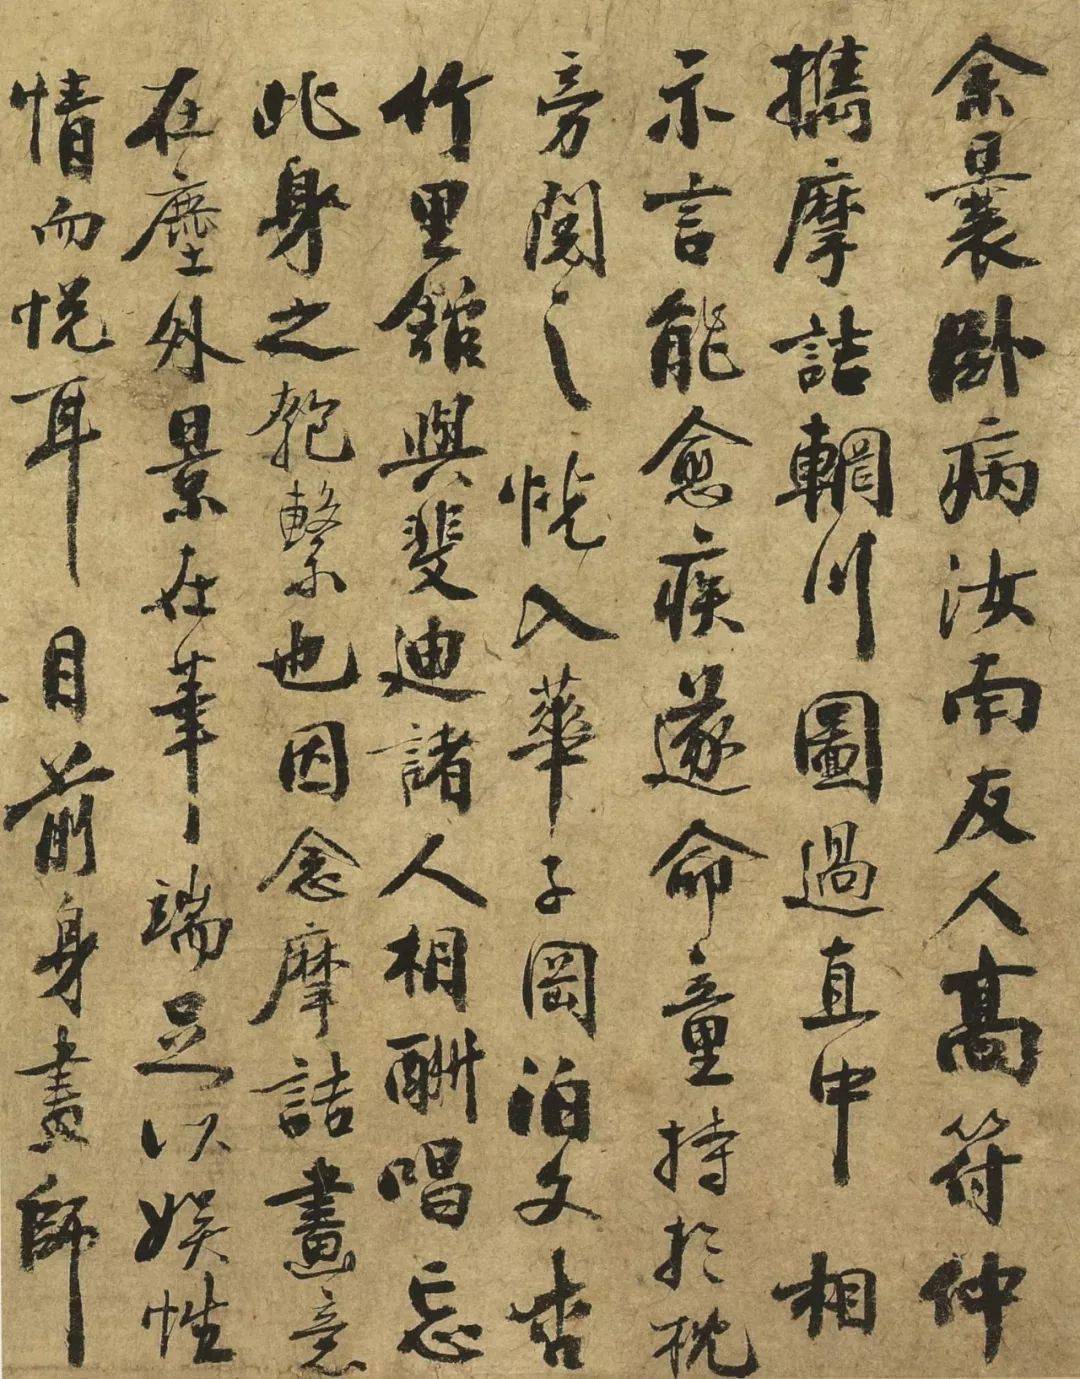 余曩卧病汝南友人髙符仲
攜摩詰輞川圖過直中相
示言能愈疾遂命童持於枕
旁閱之怳入華子岡泊文杏
竹里館與斐迪諸人相酬唱忘
此身之匏繫也因念摩詰畫意
在塵外景在筆端足以娛性
情而悦耳目前身畫師